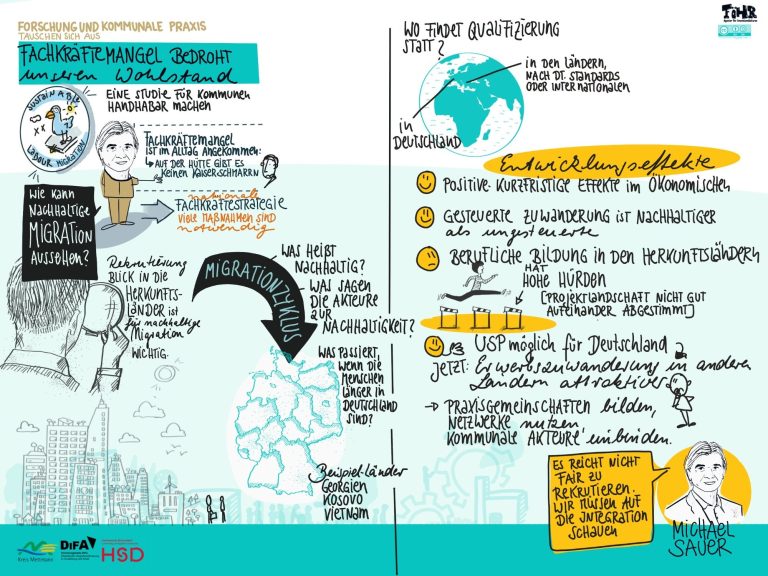 FORSCHUNG UND KOMMUNALE PRAXIS
TAUSCHEN SICH AUS
FACHKRÄFTEMANGEL BEDROHT
unseren Wohlstand
SUSTAINABLE
LABOUR MIGRATION
EINE STUDIE FÜR KOMMUNEN
HANDHABAR MACHEN
FACHKRÄFTEMANGEL
IST IM ALLTAG ANGEKOMMEN:
AUF DER HÜTTE GIBT ES
KEINEN KAISERSCHMARRN
nationale
FACHKRÄFTESTRATEGIE
VIELE MAßNAHMEN SIND
notwendig
WIE KANN
NACHHALTIGE
MIGRATION
AUSSEHEN?
Rekrutierung
BLICK IN DIE
HERKUNFTS-
LÄNDER IST
für nachhaltige
Migration
WICHTIG.
MIGRATIONZYKLUS
WAS HEIßT
NACHHALTIG?
WAS SAGEN
DIE AKTEURE
ZUR
NACHHALTIGKEIT?
WAS PASSIERT,
WENN DIE
MENSCHEN
LÄNGER IN
DEUTSCHLAND
SIND?
Beispielländer
GEORGIEN
KOSOVO
VIETNAM
Kreis Mettmann
DIFA
HSD
WO FINDET QUALIFIZIERUNG
STATT?
in DEN LÄNDERN,
NACH DT. STANDARDS
ODER INTERNATIONALEN
in
DEUTSCHLAND
Entwicklungseffekte
POSITIVE KURZFRISTIGE EFFEKTE IM ÖKONOMISCHEN
GESTEUERTE ZUWANDERUNG IST NACHHALTIGER
als ungesteuerte
BERUFLICHE BILDUNG IN DEN HERKUNFTSLÄNDERN
HAT
HOHE HÜRDEN
[PROJEKTLANDSCHAFT NICHT GUT
AUFEINANDER ABGESTIMMT]
USP MÖGLICH FÜR DEUTSCHLAND
JETZT: Erwerbszuwanderung in andere
Ländern attraktiver
→ PRAXISGEMEINSCHAFTEN BILDEN,
NETZWERKE nutzen,
KOMMUNALE AKTEURE einbinden.
ES REICHT NICHT
FAIR ZU
REKRUTIEREN.
WIR MÜSSEN AUF
DIE INTEGRATION
SCHAUEN
MICHAEL
SAUER
FöHR